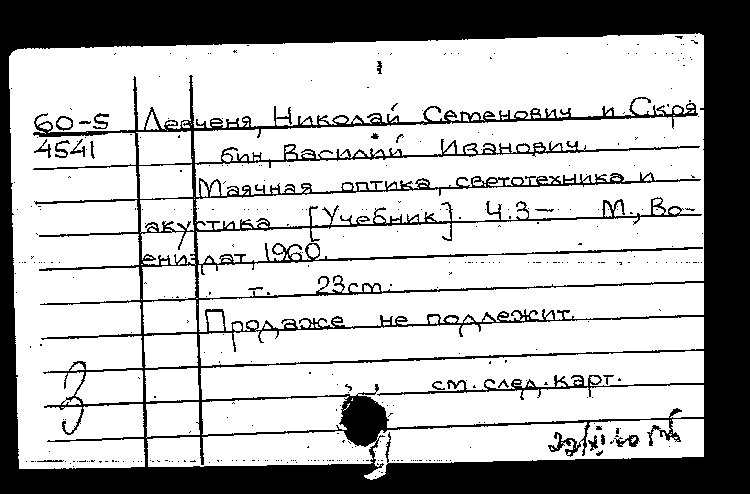 60-5 Левченя, Николай Семенович и Скря-
4541 бин, Василий Иванович
Маячная оптика, светотехника и
акустика [Учебник]. Ч.3- М., Во-
ениздат, 1960.
т. 23см.
Продаже не подлежит.
см. след. карт.
3